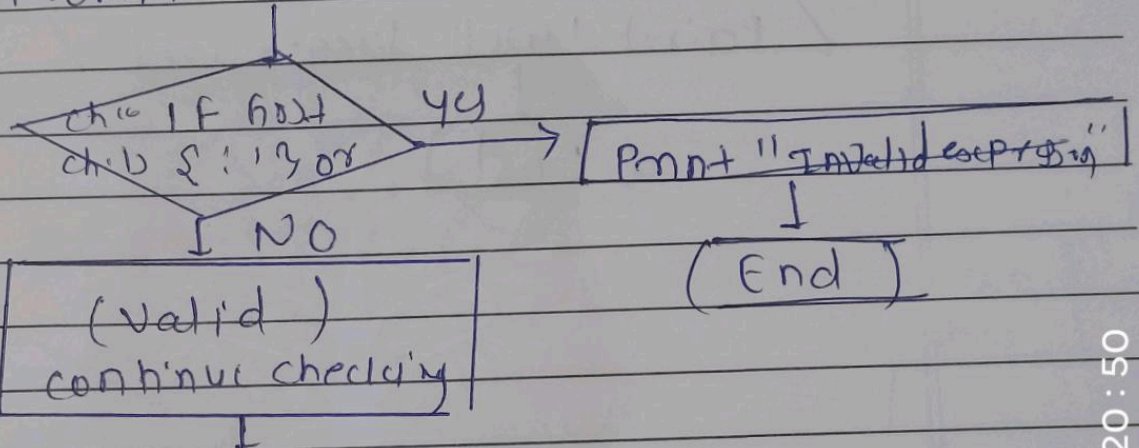 IF first
or
yes
Print "Invalid expression"
NO
(End)
(Valid)
continue checking
20:50